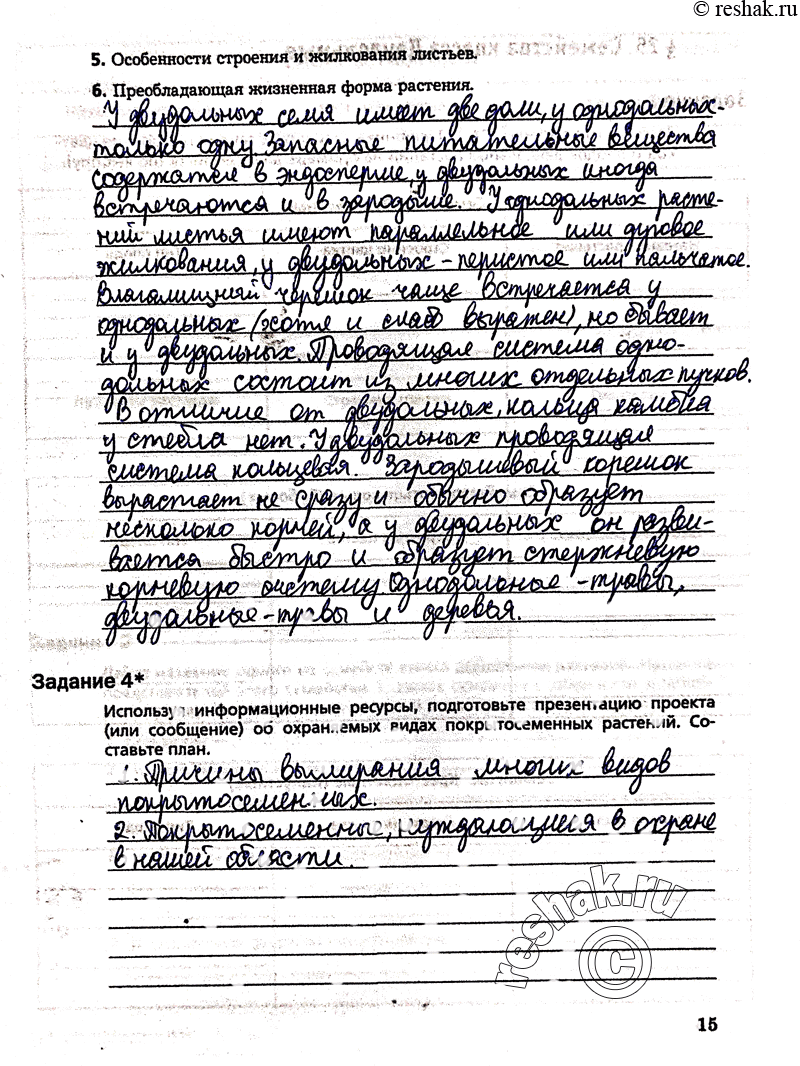 © reshak.ru
5. Особенности строения и жилкования листьев.
6. Преобладающая жизненная форма растения.
У двудольных семя имеет две доли, у однодольных-
только одну. Запасные питательные вещества
содержатся в эндосперме, у двудольных иногда
встречаются и в зародыше. У однодольных расте-
ний листья имеют параллельное или дуговое
жилкования, у двудольных - перистое или пальчатое.
Влагалищный черешок чаще встречается у
однодольных (хотя и слабо выражен), но бывает
и у двудольных. Проводящая система одно-
дольных состоит из многих отдельных пучков.
В отличие от двудольных, кольца камбия
у стебля нет. У двудольных проводящая
система кольцевая. Зародышевый корешок
вырастает не сразу и обычно образует
несколько корней, а у двудольных он разви-
вается быстро и образует стержневую
корневую систему. Однодольные - травы,
двудольные - травы и деревья.
Задание 4*
Используя информационные ресурсы, подготовьте презентацию проекта
(или сообщение) об охраняемых видах покрытосеменных растений. Со-
ставьте план.
1. Причины вымирания многих видов
покрытосеменных.
2. Покрытосеменные, нуждающиеся в охране
в нашей области.
reshak.ru
©
15